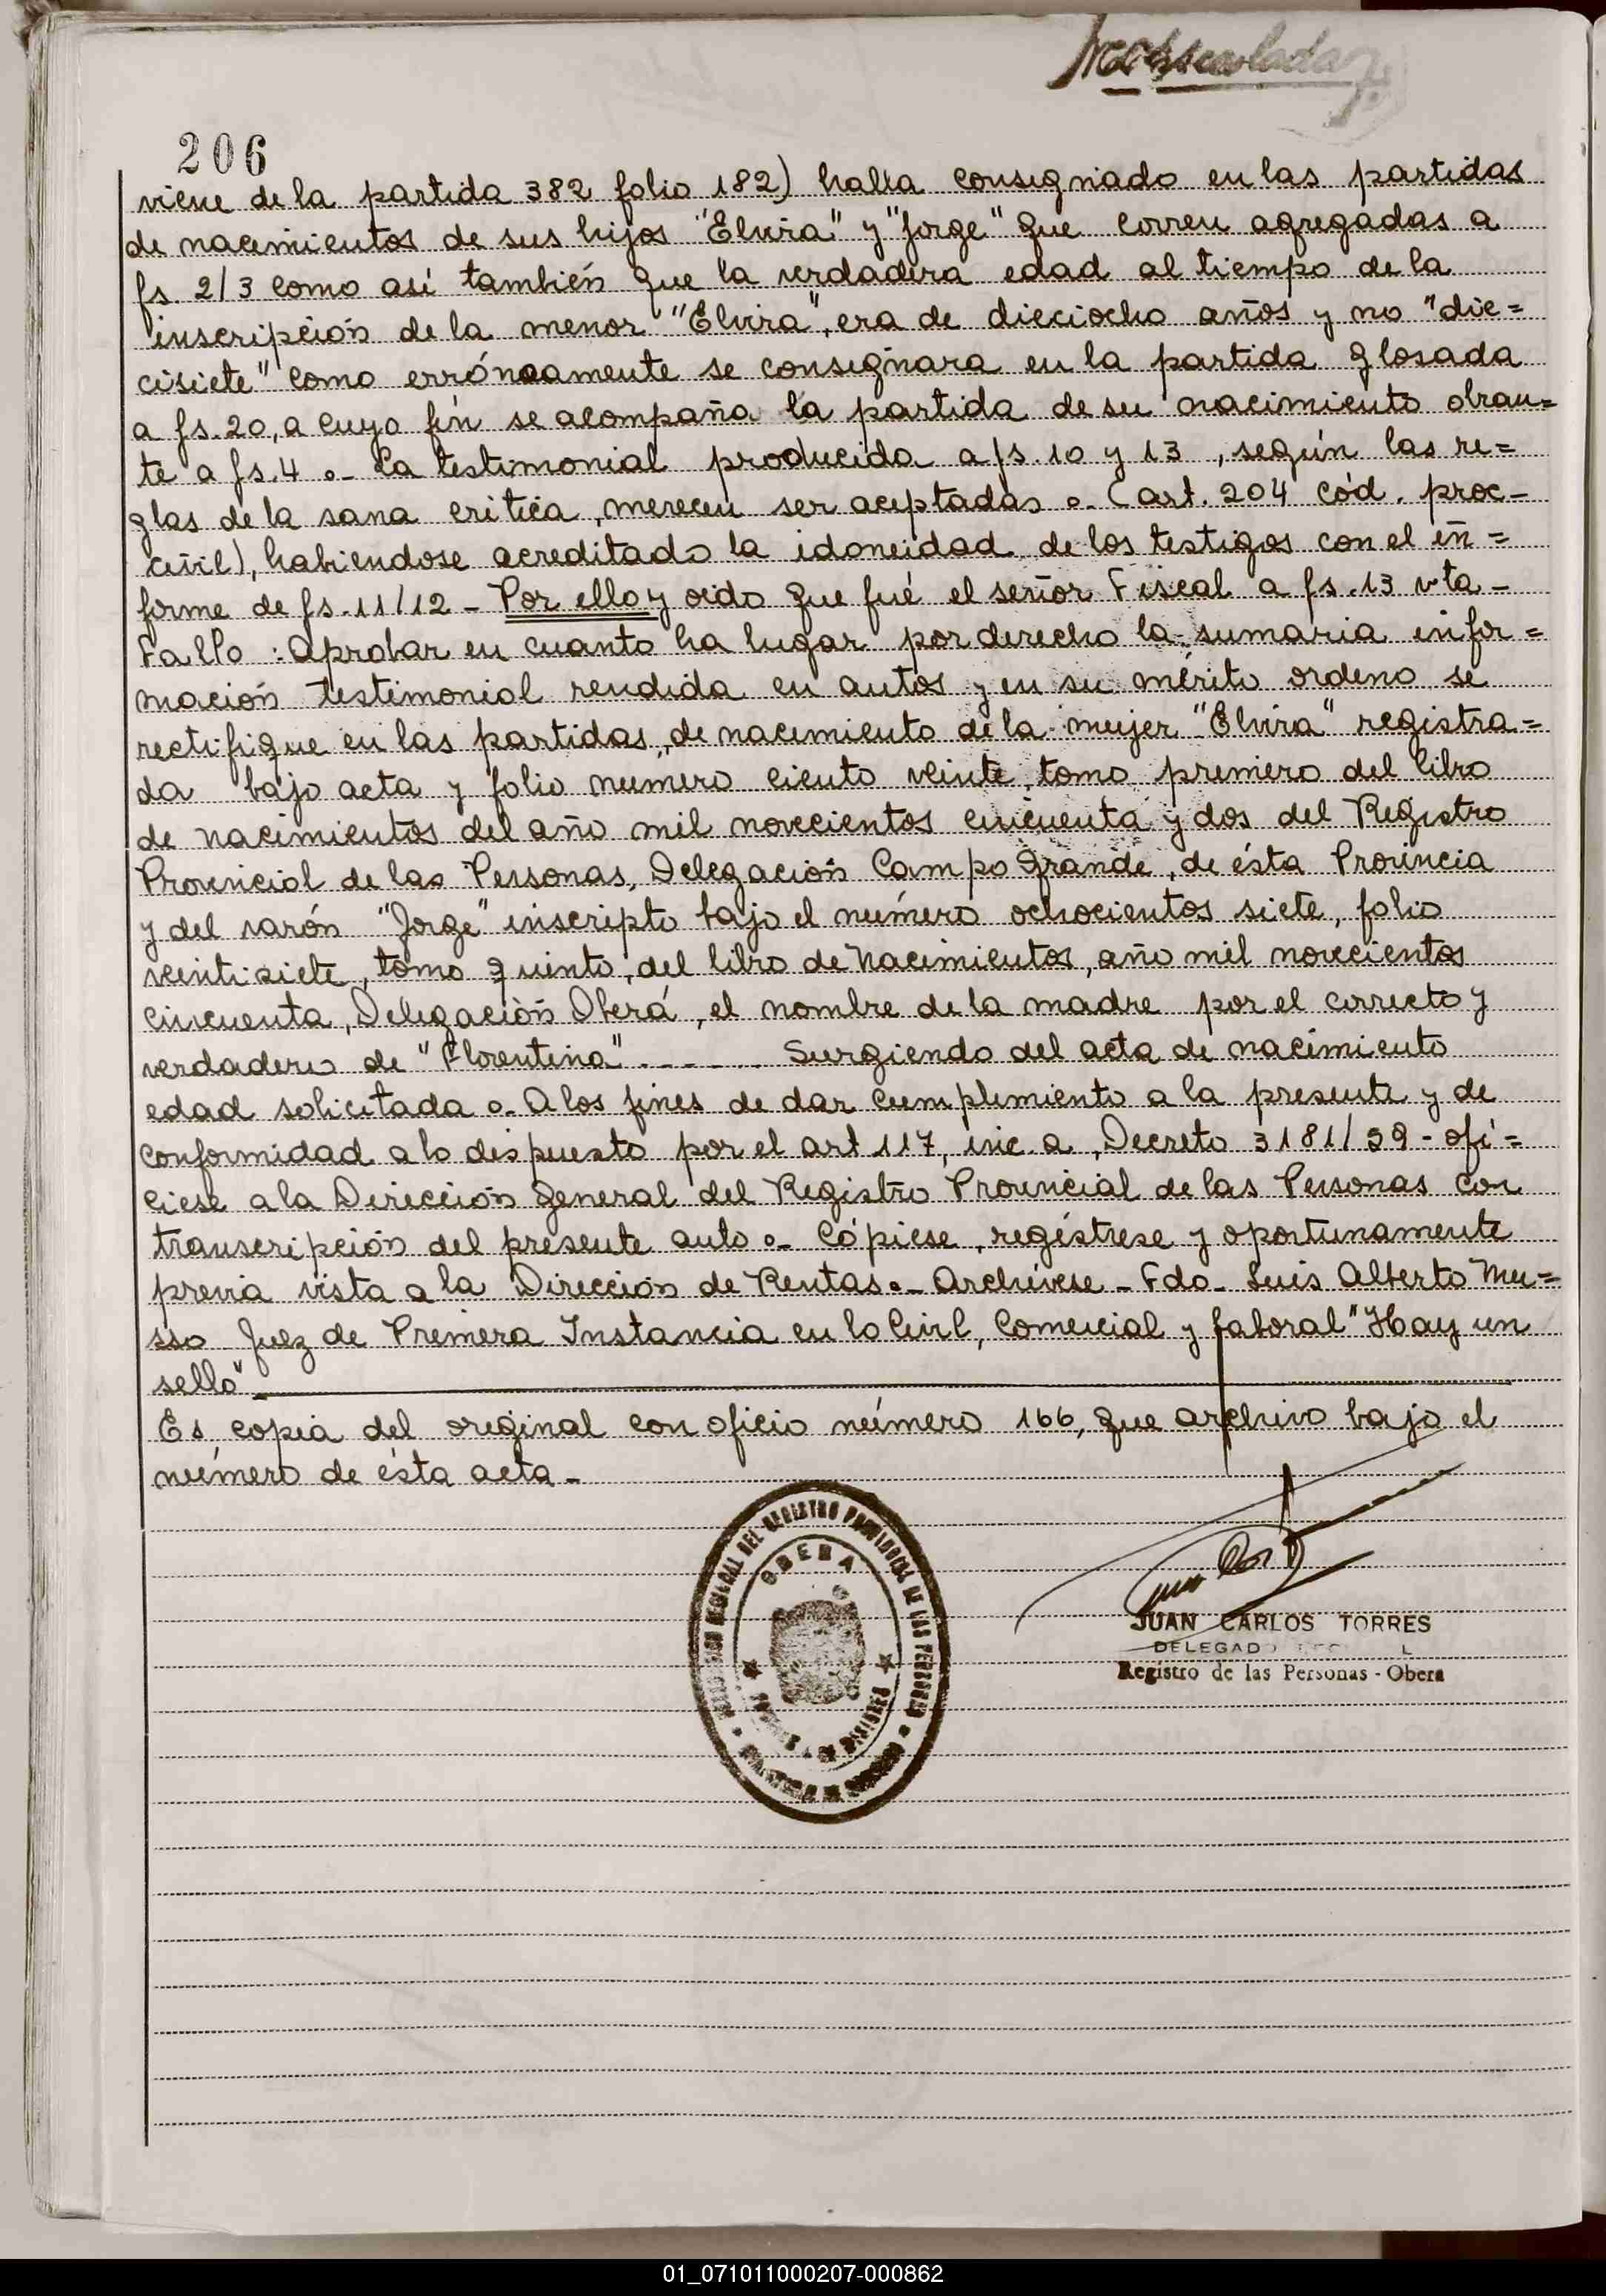 206
viene de la partida 382 folio 182) halla consignado en las partidas
de nacimientos de sus hijos "Elvira" y "Jorge" que corren agregadas a
fs. 2/3 como así también que la verdadera edad al tiempo de la
inscripción de la menor "Elvira", era de dieciocho años y no "die=
cisiete" como erróneamente se consignara en la partida glosada
a fs. 20, a cuyo fin se acompaña la partida de su nacimiento obran=
te a fs. 4 o- La testimonial producida a fs. 10 y 13, según las re=
glas de la sana crítica, merecen ser aceptadas o- (art. 204 Cód. proc-
civil), habiendose acreditado la idoneidad de los testigos con el in=
forme de fs. 11/12 - Por ello y oido que fué el señor Fiscal a fs. 13 vta-
Fallo: Aprobar en cuanto ha lugar por derecho la sumaria infor=
mación testimonial rendida en autos y en su mérito ordeno se
rectifique en las partidas de nacimiento de la mujer "Elvira" registra=
da bajo acta y folio número ciento veinte, tomo primero del libro
de nacimientos del año mil novecientos cincuenta y dos del Registro
Provincial de las Personas, Delegación Campo Grande, de ésta Provincia
y del varón "Jorge" inscripto bajo el número ochocientos siete, folio
veintisiete, tomo quinto, del libro de Nacimientos, año mil novecientos
cincuenta, Delegación Oberá, el nombre de la madre por el correcto y
verdadero de "Florentina" ------- Surgiendo del acta de nacimiento
edad solicitada o- A los fines de dar cumplimiento a la presente y de
conformidad a lo dispuesto por el art 117, inc. a, Decreto 3181/59 - ofí=
ciese a la Dirección General del Registro Provincial de las Personas con
transcripción del presente auto o- Cópiese, regístrese y oportunamente
previa vista a la Dirección de Rentas o- Archívese - Fdo- Luis Alberto Mu=
sso Juez de Primera Instancia en lo Civil, Comercial y Laboral "Hay un
sello" -
Es copia del original con oficio número 166, que archivo bajo el
número de ésta acta -
DEL REGISTRO PROVINCIAL DE LAS PERSONAS
OBERA
JUAN CARLOS TORRES
DELEGADO
Registro de las Personas - Obera
01_071011000207-000862